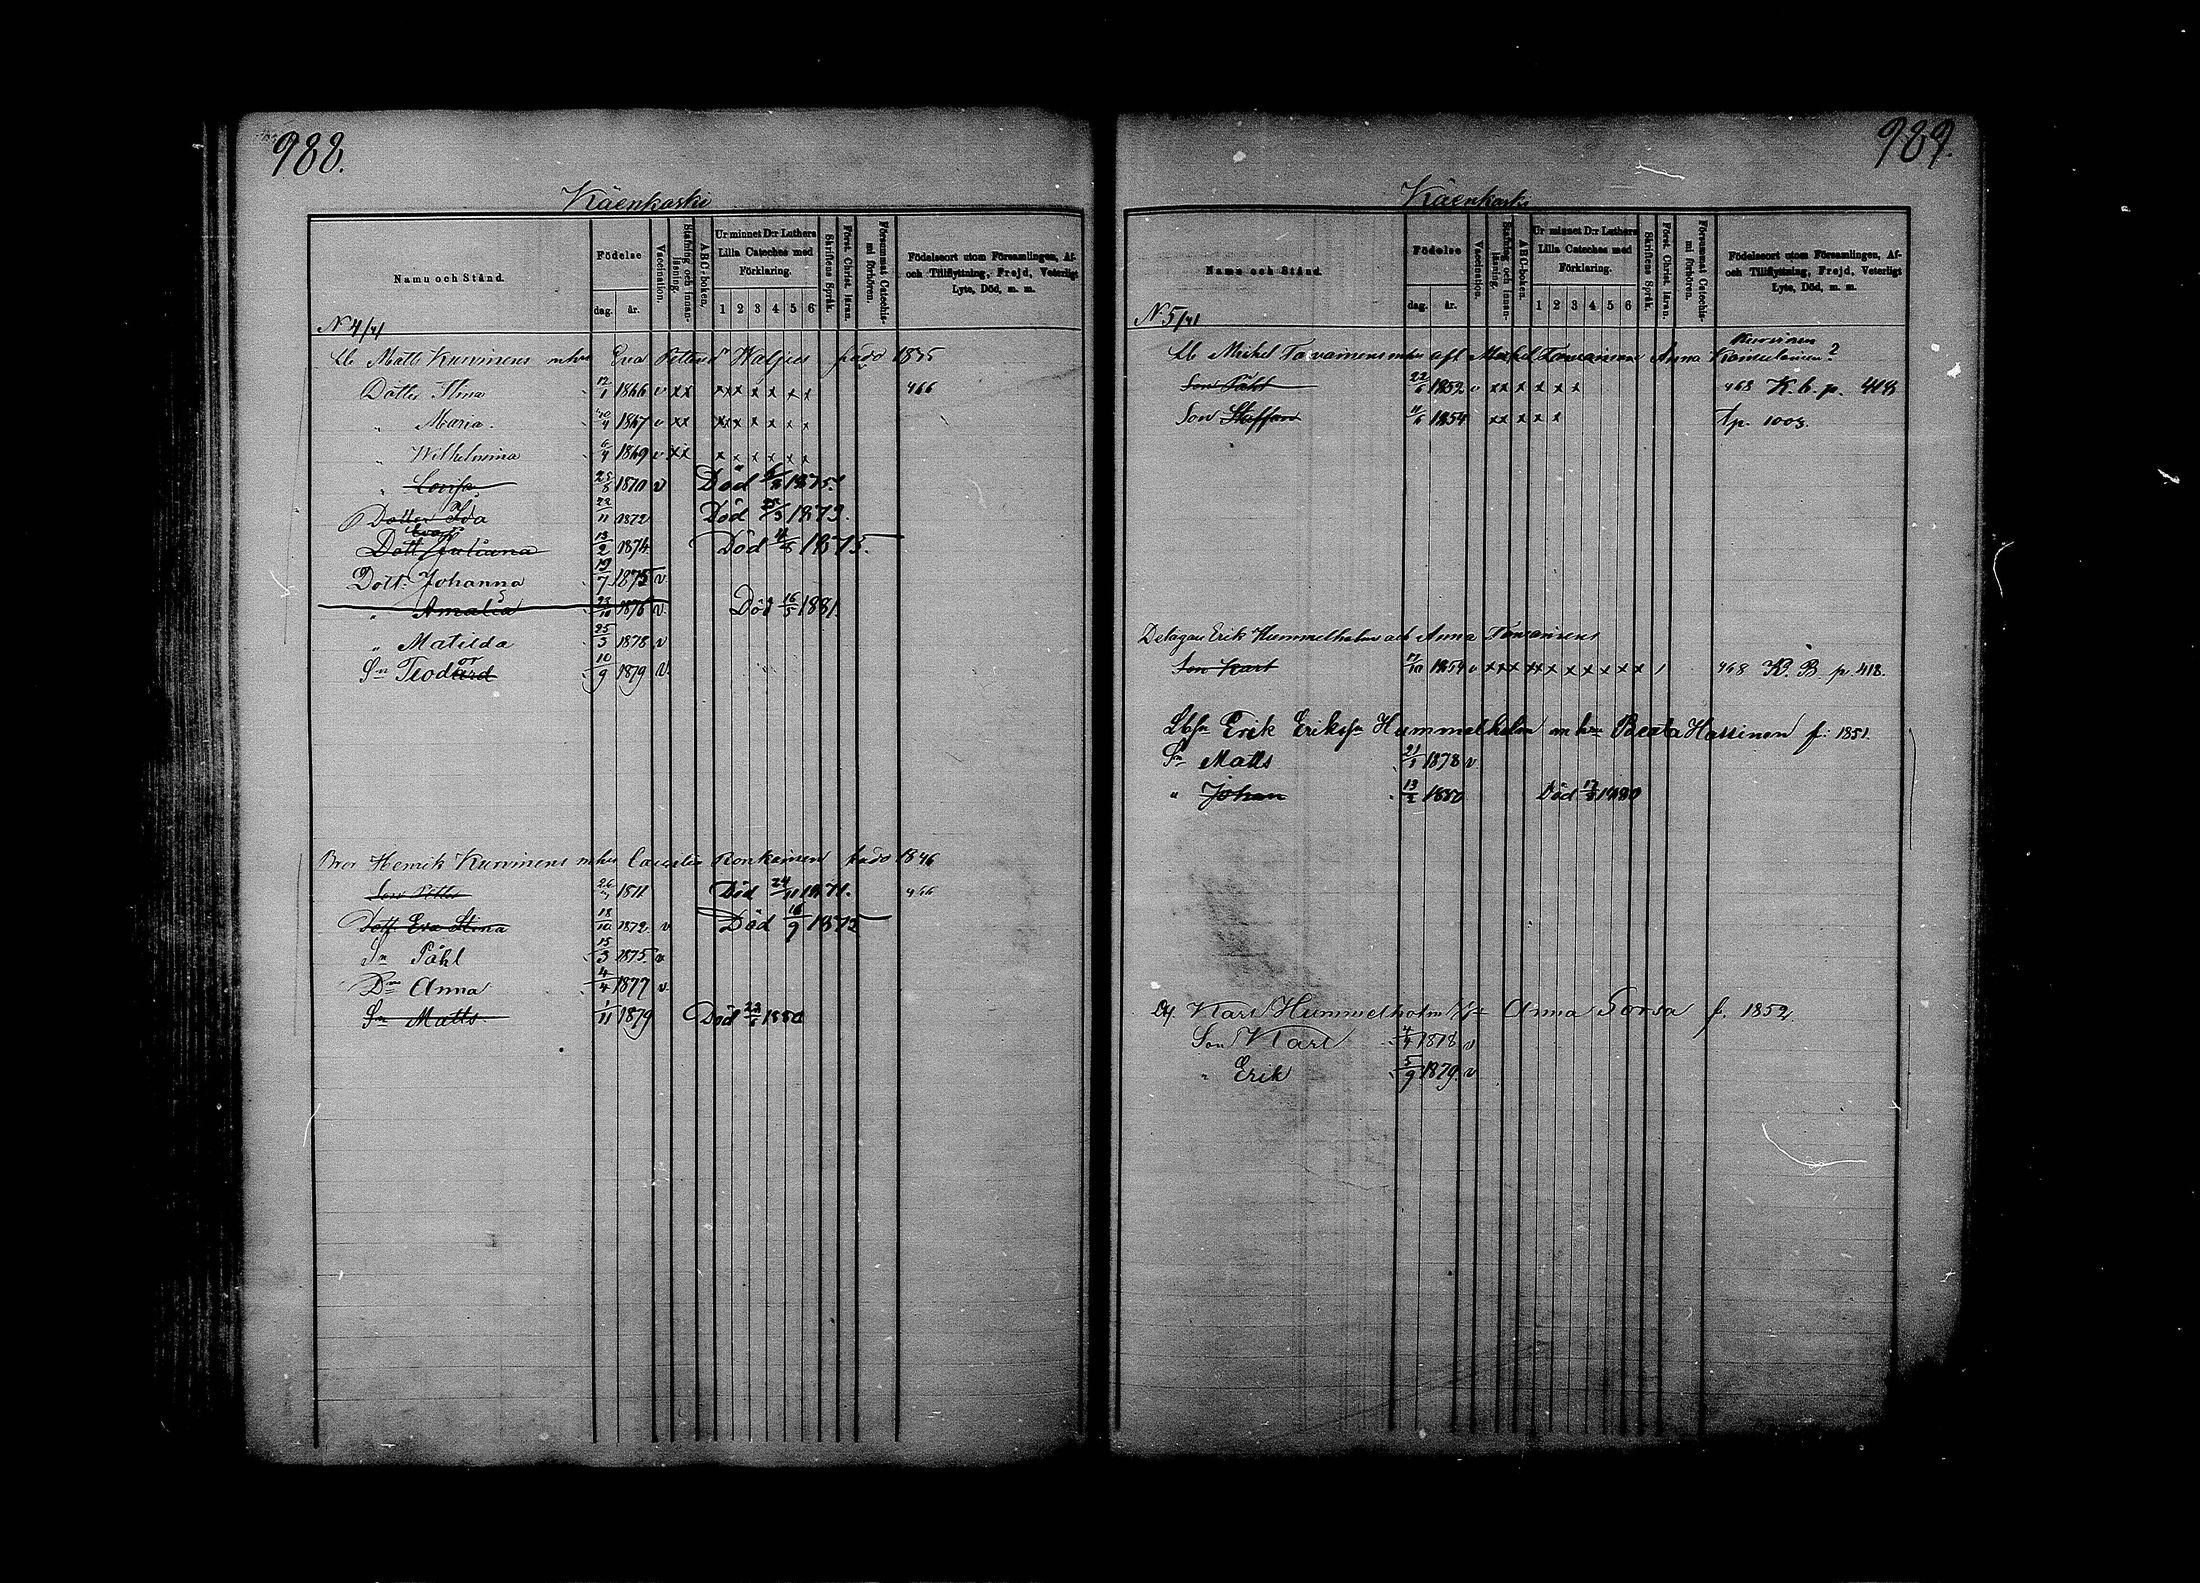 988.
Käenkoski
Namn och Stånd.
Födelse
dag.
år.
Vaccination.
Stafning och Innan-läsning.
ABC-boken.
Ur minnet D:r Luthers Lilla Cateches med Förklaring.
1 2 3 4 5 6
Skriftens Språk.
Först. Christ. läran.
Försummat Catechis-mi förhören.
Födelseort utom Församlingen, Af- och Tillflyttning, Frejd, Veterligt Lyte, Död, m. m.
N 4/41
Lb Matts Kurvinens m hu Eva Petter Dr född 1835
Dotter Ilma 12/1 1866 v xx xxx x x x x 466
" Maria. 1867 v xx xxx x x x x
" Wilhelmina 6/4 1869 v xx x x x x x x
" Lovisa 25/8 1870 v Död 1875.
Dotter Ida 22/11 1872 Död 1873.
Dott Eva Juliana 13/2 1874 Död 1875.
Dott. Johanna 19/7 1875 v
" Amalia 23/10 1876 v. Död 16/5 1881
" Matilda 25/3 1878 v
Sn Teodor 10/9 1879 v.
Bror Henrik Kurvinens m hu Ronkainen född 1846
Son Petter 26/ Död 24/11 1871. 466
Dott. Eva Stina 18/10 1872 v Död 16/9 1875
Sn Påhl 15/3 1875 v
Dr Anna 4/4 1877 v.
Sn Matts. 1/11 1879 Död 23/6 1880
989.
Käenkoski
Namn och Stånd.
Födelse
dag.
år.
Vaccination.
Stafning och Innan-läsning.
ABC-boken.
Ur minnet D:r Luthers Lilla Cateches med Förklaring.
1 2 3 4 5 6
Skriftens Språk.
Först. Christ. läran.
Försummat Catechis-mi förhören.
Födelseort utom Församlingen, Af- och Tillflyttning, Frejd, Veterligt Lyte, Död, m. m.
N. 5/41
Kurvinen
Lb Mickel Tarvainens Anna ?
Son Påhl 22/6 1852 v xx x x x x 468 K. b. p. 418
Son Staffan 11/6 1854 xx x x x Tp. 1003.
Delagare Erik Hummelholm och Anna Tarvainens
Son Karl 1854 v xxx xx x x x x x x 1 468 K. B. p. 418.
Lbsn Erik Eriksn Hummelholm m hu Beata Hassinen f. 1851.
Sn Matts 21/1 1878 v
" Johan 13/2 1880 Död 17/3 1880
Karl Hummelholm Anna Sorsa f. 1852.
Son Karl 4/4 1878 v
" Erik 5/9 1879. v